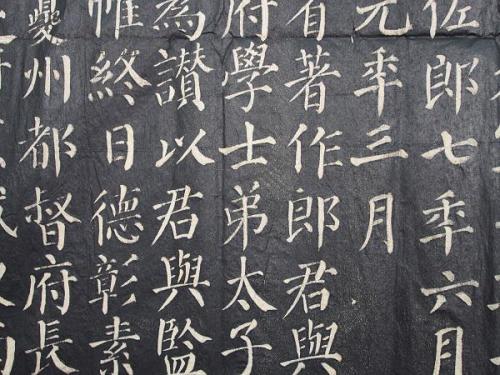 佐郎七秊六月
元秊三月
省著作郎君與
府學士弟太子
為讚以君與監
帷終日德彰素
夔州都督府長